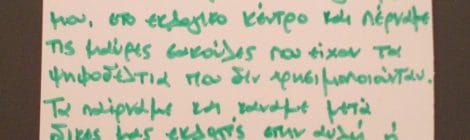 μου, στο εκλογικό κέντρο και πέρναμε
τις μαύρες σακούλες που είχαν τα
ψηφοδέλτια που δεν χρησιμοποιούνταν.
Τα παίρναμε και κάναμε μετά
δικές μας εκλογές στην αυλή ή